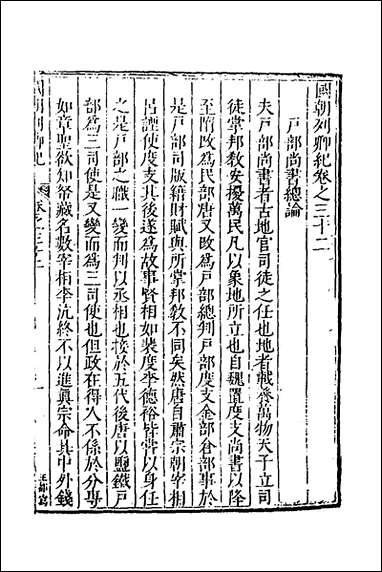 國朝列卿紀卷之三十二
戸部尚書總論
夫戸部尚書者古地官司徒之任也地者載養萬物天子立司
徒掌邦敎安擾萬民凡以象地所立也自魏置度支尚書以降
至隋改爲民部唐又改爲戸部總判戸部度支金部倉部事於
是戸部司版籍財賦與所掌邦敎不同矣然唐自肅宗朝宰相
呂諲使度支其後遂爲故事賢相如裴度李德裕皆嘗以身任
之是戸部之職一變而判以丞相也接於五代後唐以鹽鐵戸
部爲三司使是又變而爲三司使也但政在得人不係於分專
如章聖欲知帑藏名數宰相李沆終不以進眞宗命具中外錢
國朝列卿紀
卷之三十二